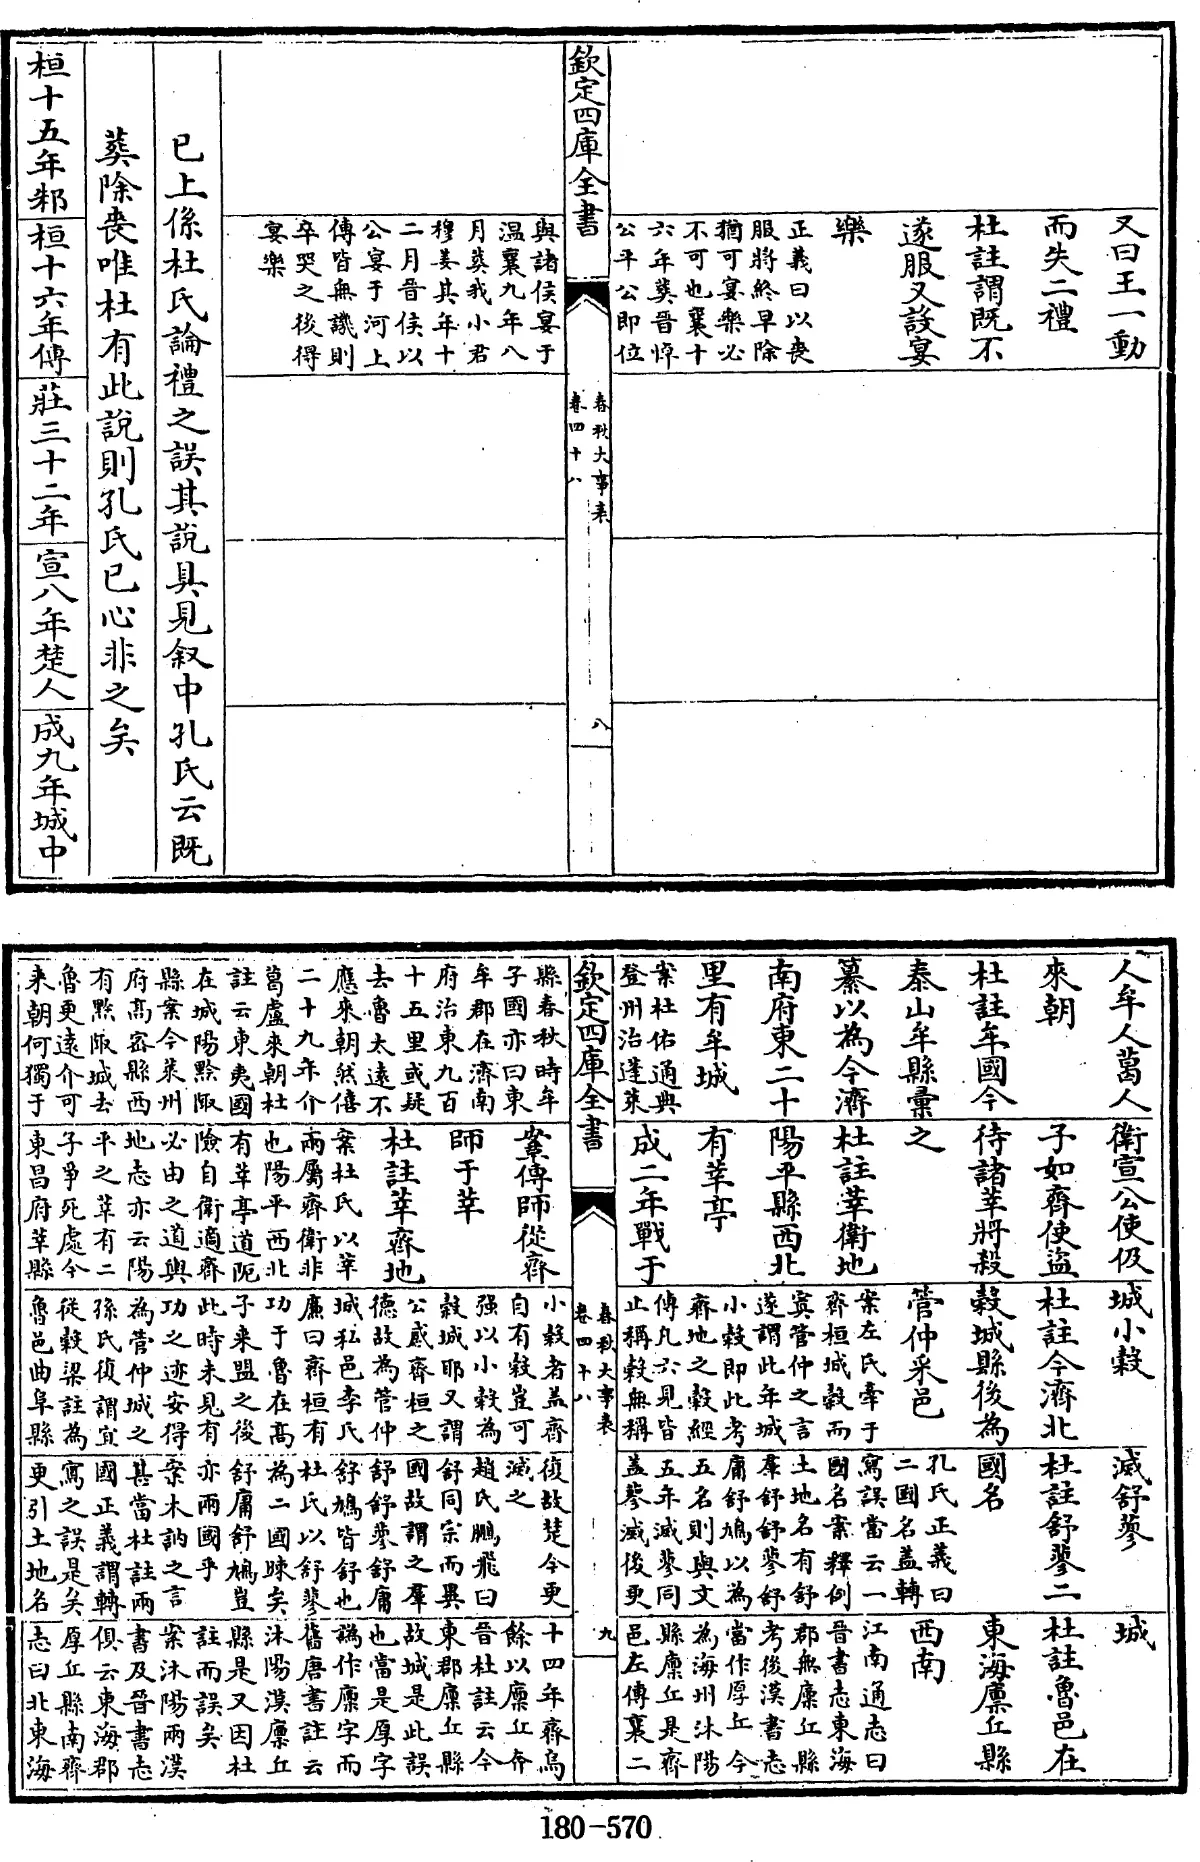 又曰王一動
而失二禮
杜註謂既不
遂服又設宴
樂
正義曰以喪
服將終早除
猶可宴樂必
不可也襄十
六年葬晉悼
公平公即位
欽定四庫全書
春秋大事表
卷四十八
八
與諸侯宴于
温襄九年八
月葬我小君
穆姜其年十
二月晉侯以
公宴于河上
傳皆無譏則
卒哭之後得
宴樂
已上係杜氏論禮之誤其說具見叙中孔氏云既
葬除喪唯杜有此說則孔氏已心非之矣
桓十五年邾
桓十六年傳
莊三十二年
宣八年楚人
成九年城中
人牟人葛人
來朝
杜註牟國今
泰山牟縣彙
纂以為今濟
南府東二十
里有牟城
案杜佑通典
登州治蓬萊
欽定四庫全書
春秋大事表
卷四十八
九
縣春秋時牟
子國亦曰東
牟郡在濟南
府治東九百
十五里或疑
去魯太遠不
應來朝然僖
二十九年介
葛盧來朝杜
註云東夷國
在城陽黔陬
縣案今萊州
府高密縣西
有黔陬城去
魯更遠介可
来朝何獨于
衛宣公使伋
子如齊使盜
待諸莘將殺
之
杜註莘衛地
陽平縣西北
有莘亭
成二年戰于
鞌傳師從齊
師于莘
杜註莘齊地
案杜氏以莘
兩屬齊衛非
也陽平西北
有莘亭道阨
險自衛適齊
必由之道與
地志亦云陽
平之莘有二
子爭死處今
東昌府莘縣
城小穀
杜註今濟北
穀城縣後為
管仲采邑
案左氏牽于
齊桓城穀而
寘管仲之言
遂謂此年城
小穀即此考
齊地之穀經
傳凡六見皆
止稱穀無稱
小穀者蓋齊
自有穀豈可
强以小穀為
穀城耶又謂
公感齊桓之
德故為管仲
城私邑李氏
廉曰齊桓有
功于魯在高
子来盟之後
此時未見有
功之迹安得
為管仲城之
孫氏復謂宜
從穀梁註為
魯邑曲阜縣
滅舒蓼
杜註舒蓼二
國名
孔氏正義曰
二國名蓋轉
寫誤當云一
國名案釋例
土地名有舒
羣舒舒蓼舒
庸舒鳩以為
五名則與文
五年滅蓼同
蓋蓼滅後更
復故楚今更
滅之
趙氏鵬飛曰
舒同宗而異
國故謂之羣
舒舒蓼舒庸
舒鳩皆舒也
杜氏以舒蓼
為二國疎矣
舒庸舒鳩豈
亦兩國乎
案木訥之言
甚當杜註兩
國正義謂轉
寫之誤是矣
更引土地名
城
杜註魯邑在
東海廪丘縣
西南
江南通志曰
晉書志東海
郡無廪丘縣
考後漢書志
當作厚丘今
為海州沭陽
縣廪丘是齊
邑左傳襄二
十四年齊烏
餘以廪丘奔
晉杜註云今
東郡廪丘縣
故城是此誤
也當是厚字
譌作廪字而
舊唐書註云
沭陽漢廪丘
縣是又因杜
註而誤矣
案沭陽兩漢
書及晉書志
俱云東海郡
厚丘縣南齊
志曰北東海
180-570